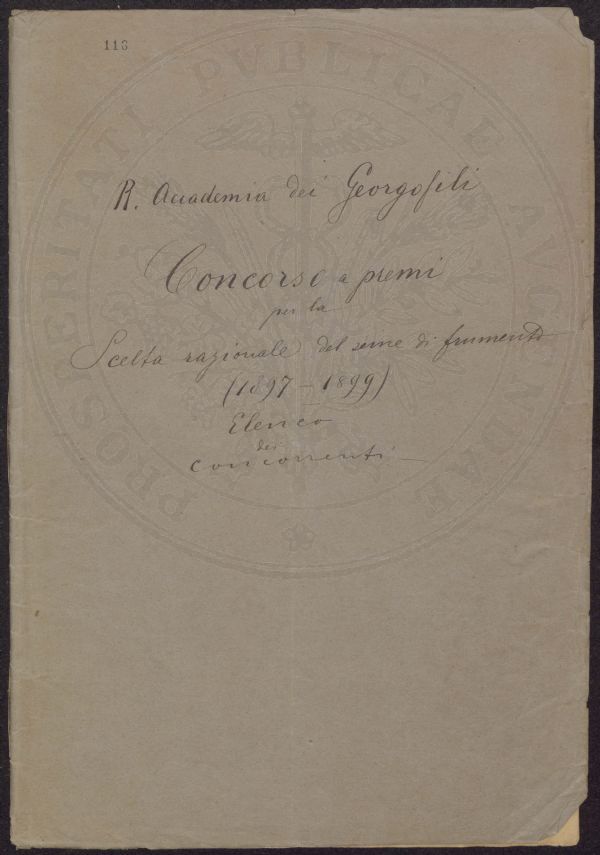 118
PROSPERITATI PVBLICAE AVGENDAE
R. Accademia dei Georgofili
Concorso a premi
per la
Scelta razionale del seme di frumento
(1897-1899)
Elenco
dei
Concorrenti